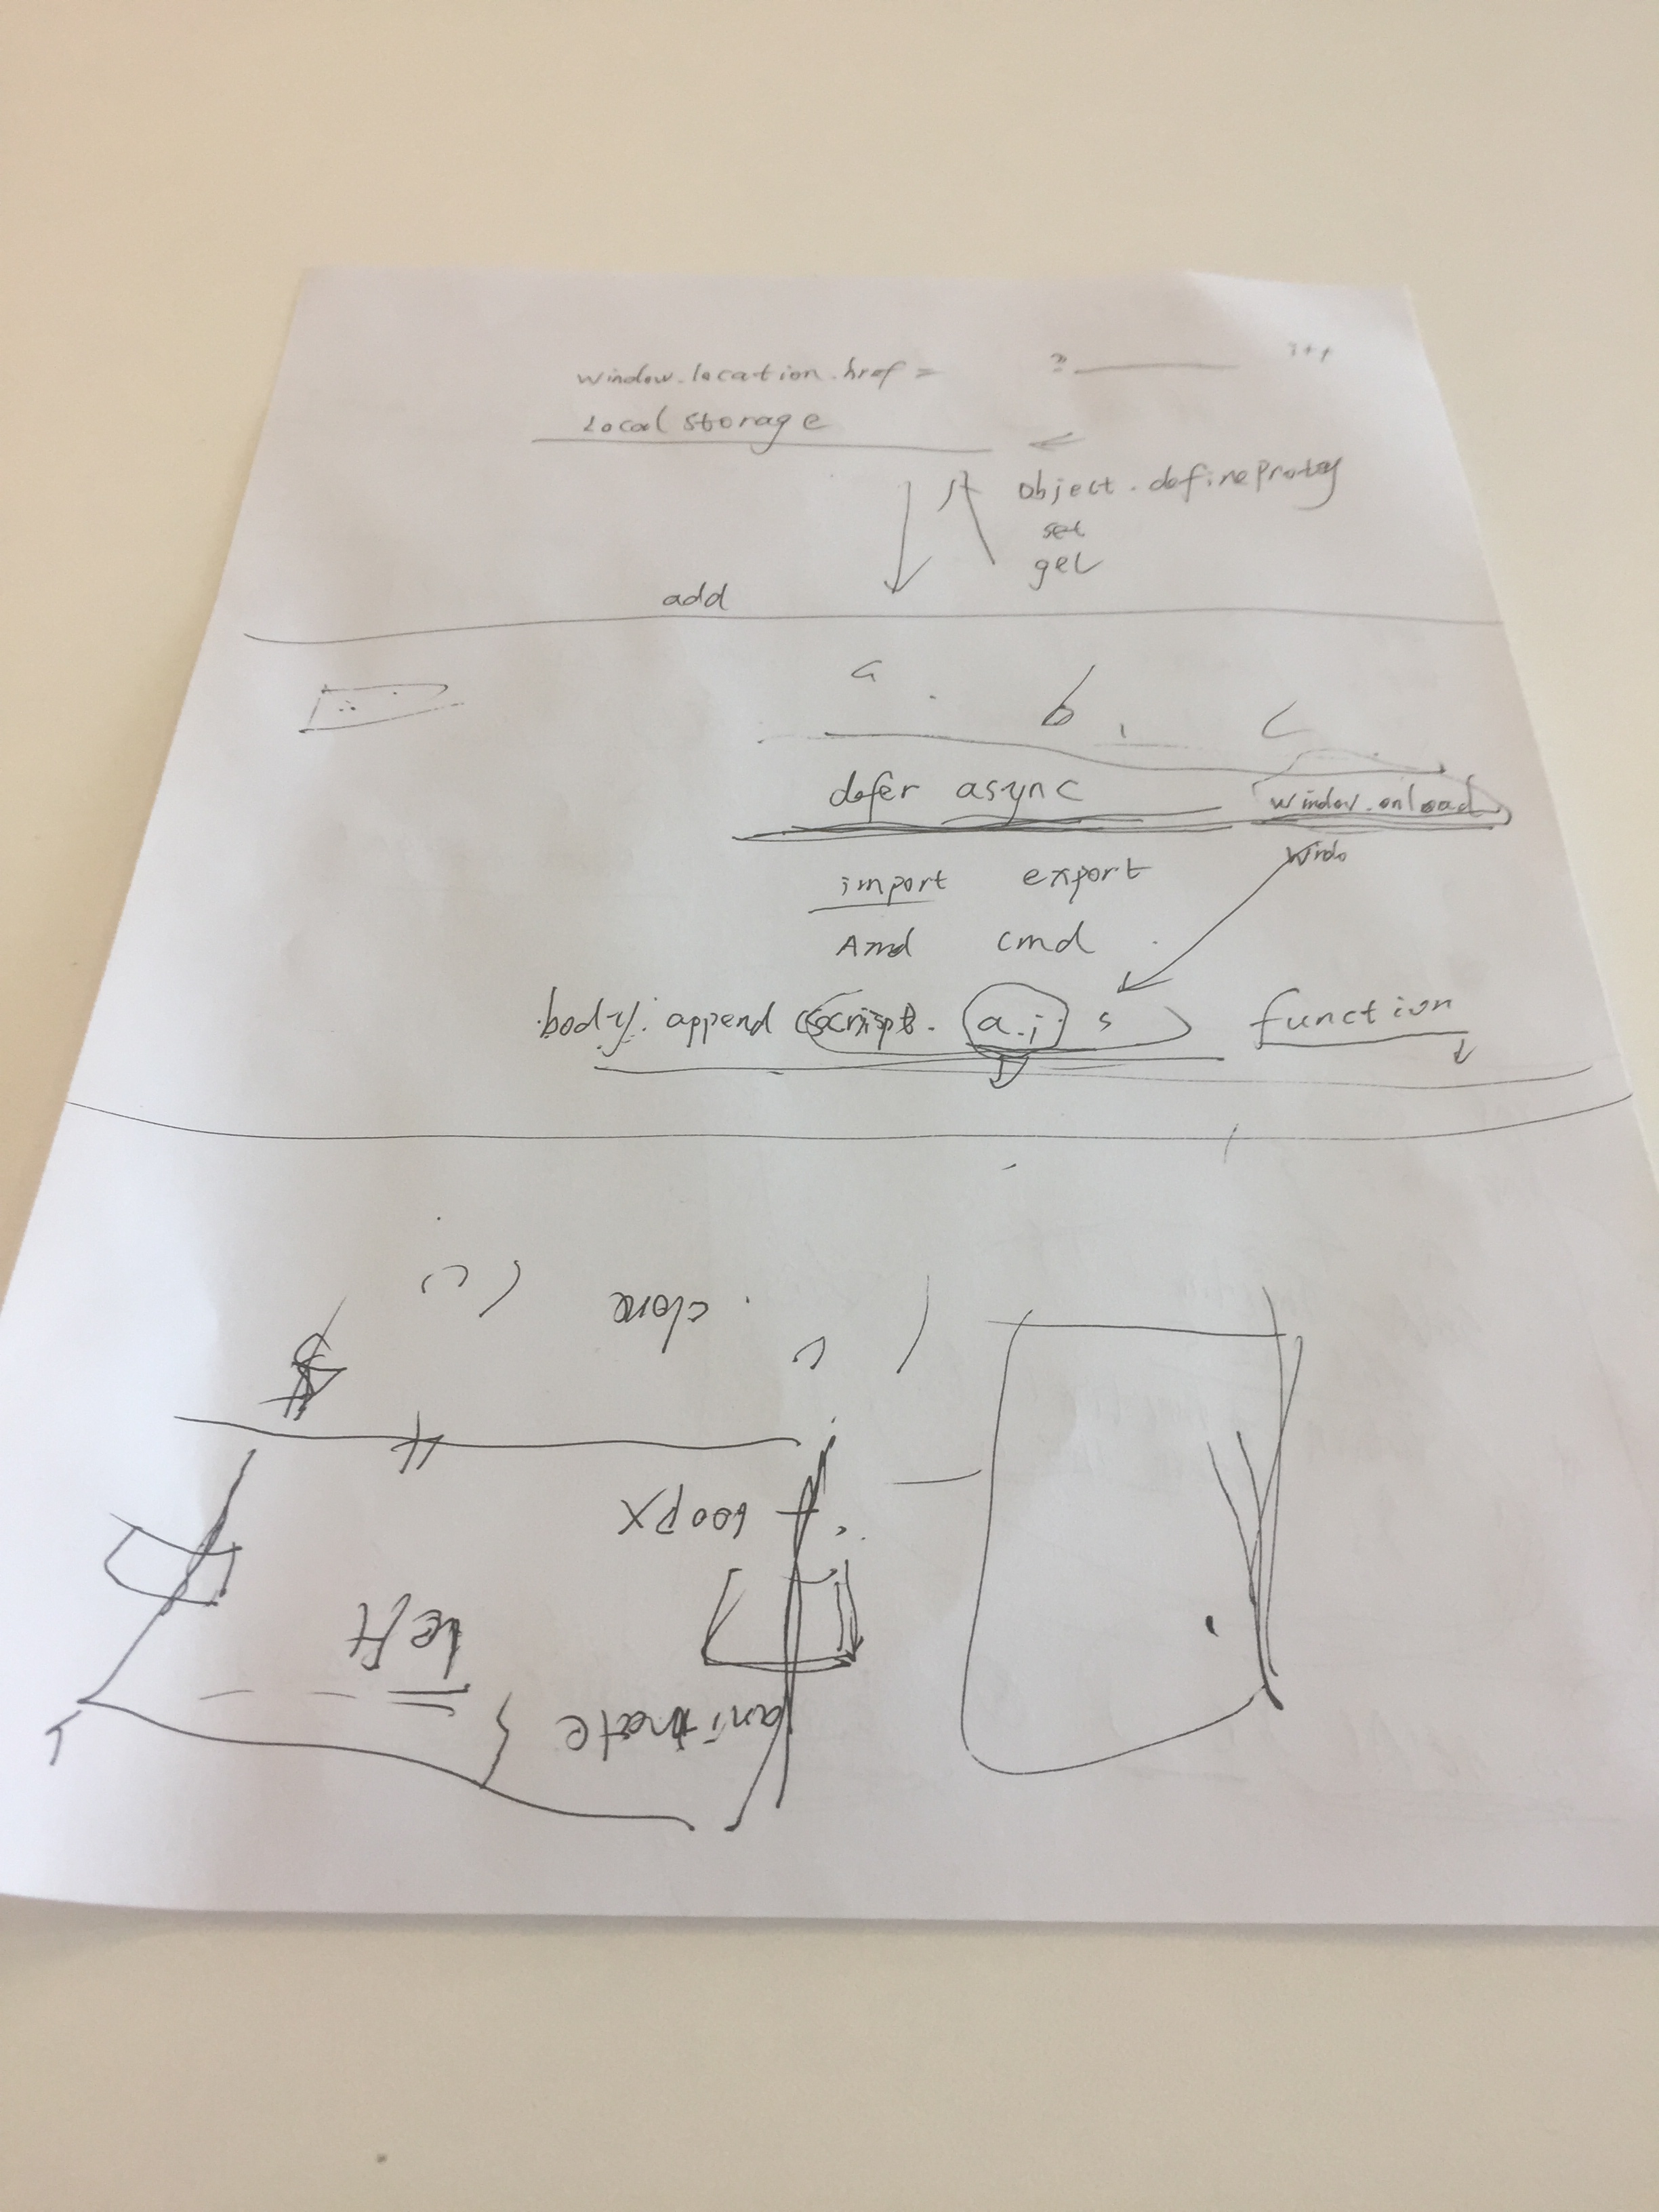 window.location.href = ?
Local storage
object.defineProty
set
get
add
a b, c
defer async window.onload
Windo
import export
Amd cmd
body.append (script. a.js) function
.clone
$
600px
left
animate